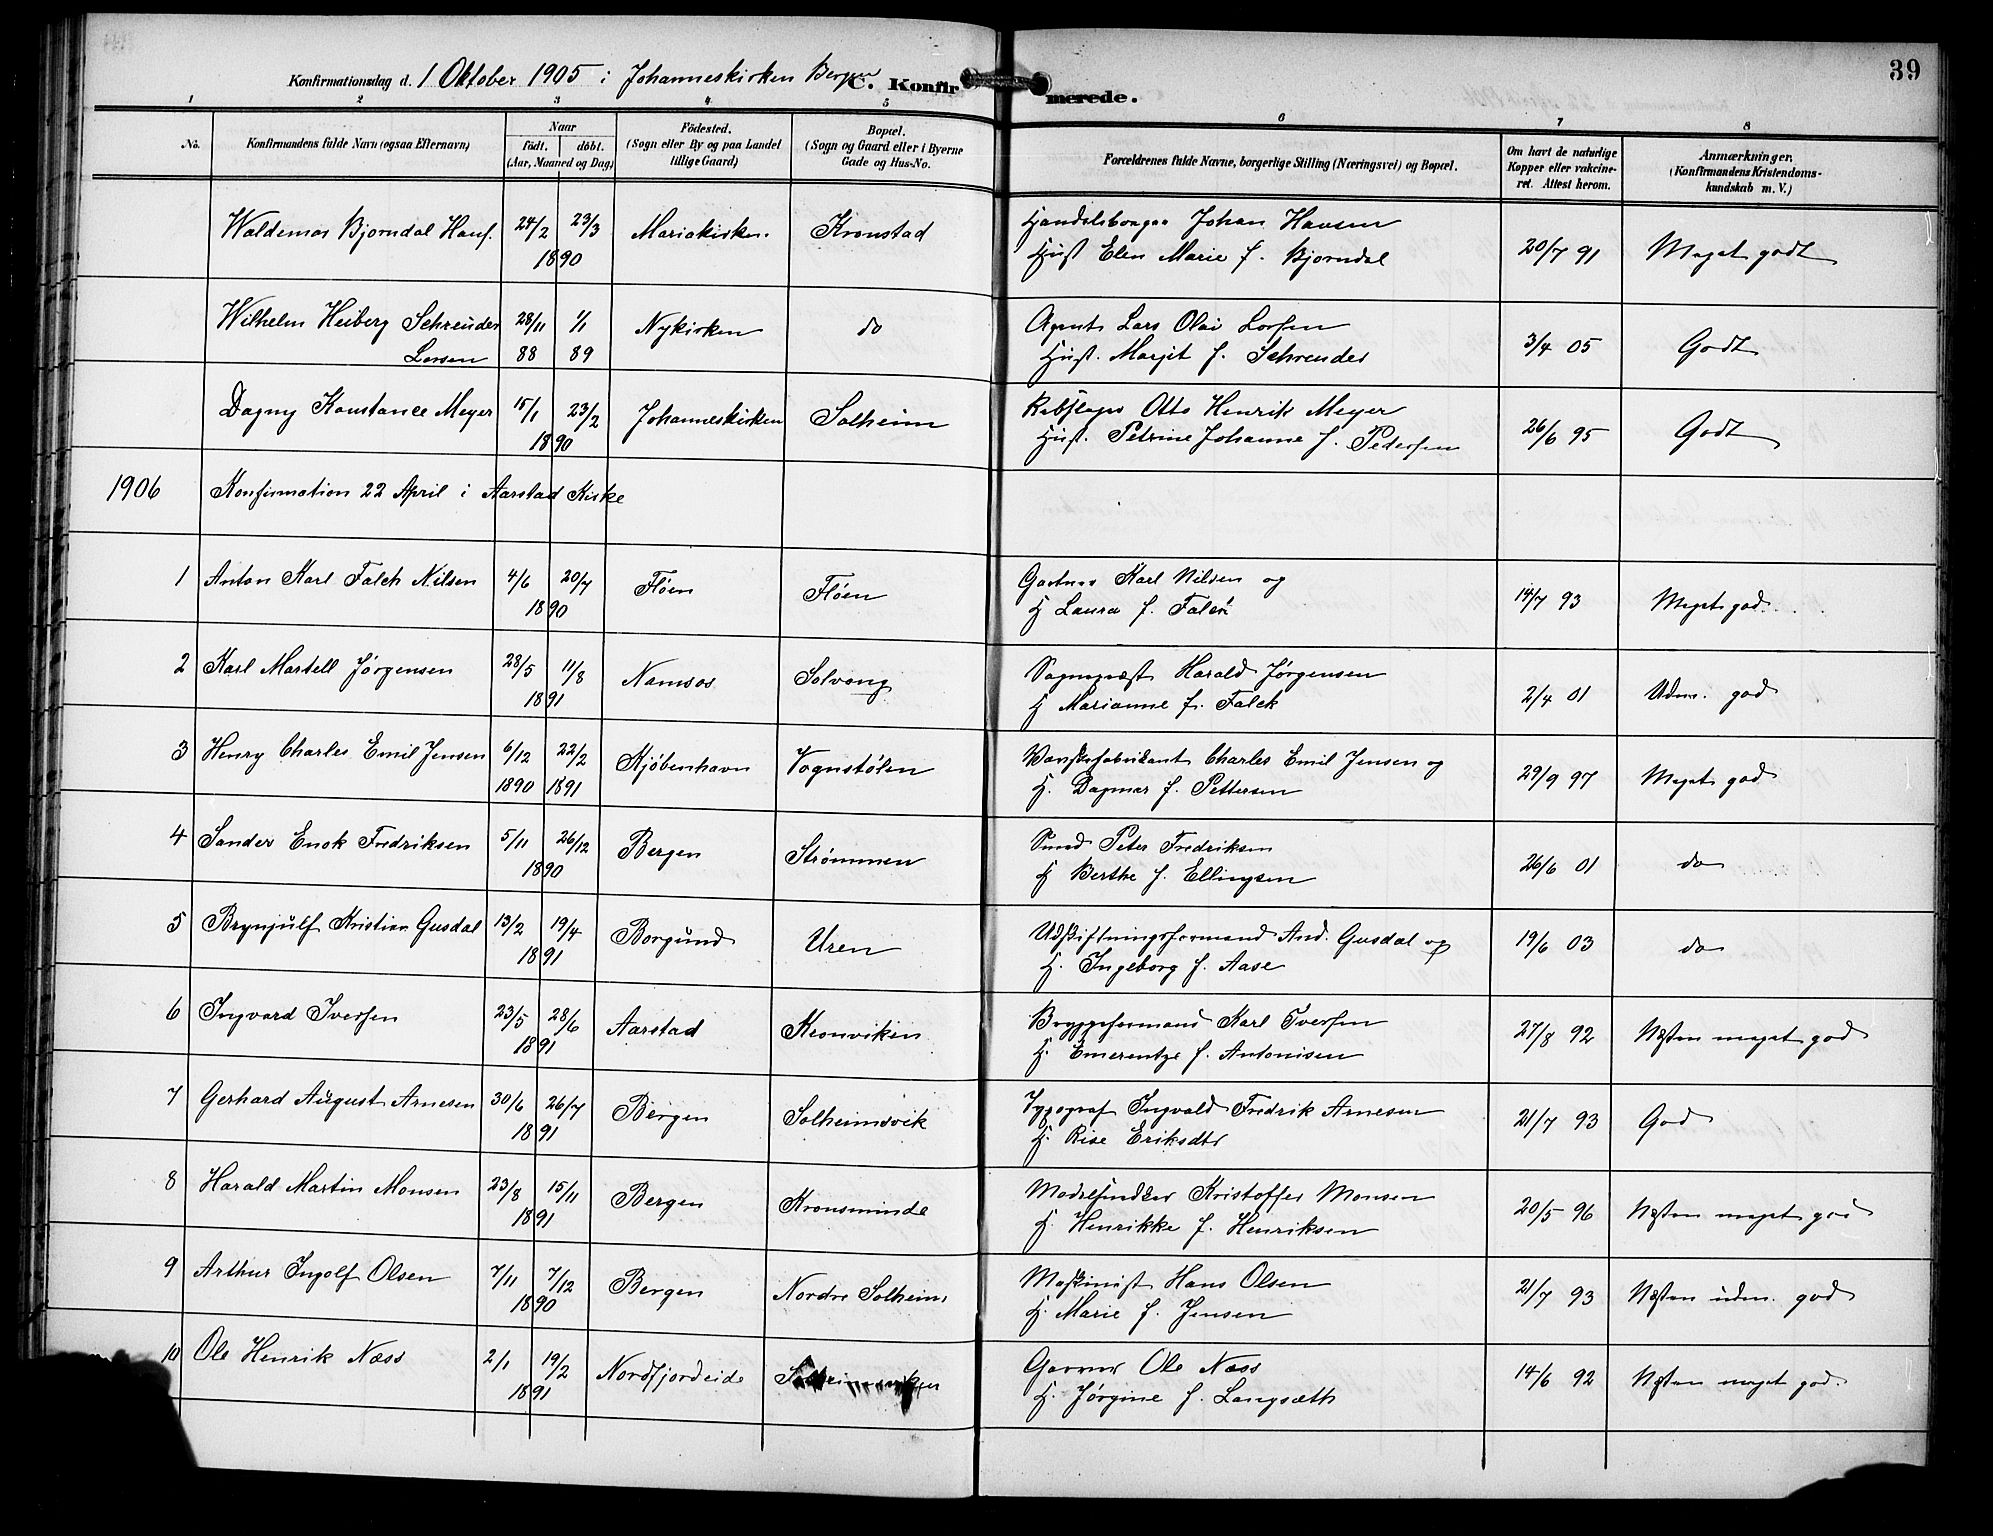 39
Konfirmationsdag d. 1 Oktober 1905 i Johanneskirken Bergen
C. Konfirmerede.
1 2 3 4 5 6 7 8
No. Konfirmandens fulde Navn (ogsaa Efternavn) Naar født. døbt. (Aar, Maaned og Dag) Fødested. (Sogn eller By og paa Landet tillige Gaard) Bopæl. (Sogn og Gaard eller i Byerne Gade og Hus-No. Forældrenes fulde Navne, borgerlige Stilling (Næringsvei) og Bopæl. Om havt de naturlige Kopper eller vakcineret. Attest herom. Anmærkninger. (Konfirmandens Kristendomskundskab m. V.)
Waldemar Bjorndal Hans. 24/2 23/3 Mariakirken Kronstad Handelsborger Johan Hansen 20/7 91 Meget godt
1890 Hust Elen Marie f. Bjorndal
Wilhelm Heiberg Schreuder 28/11 1/1 Nykirken do Agent Lars Olai Larsen 3/4 05 Godt
Larsen 88 89 Hust. Marjit f. Schreuder
Dagny Konstance Meyer 15/1 23/2 Johanneskirken Solheim Rebslager Otto Henrik Meyer 26/6 95 Godt
1890 Hust. Petrine Johanne f. Pedersen
1906 Konfirmation 22 April i Aarstad Kirke
1 Anton Karl Falch Nilsen 4/6 20/7 Fløen Fløen Gartner Karl Nilsen og 14/7 93 Meget god
1890 H Laura f. Falch
2 Karl Martell Jørgensen 28/5 11/8 Namsos Solvang Sagmest Harald Jørgensen 2/4 01 Udm. god
1891 H Marianne f. Falck
3 Henry Charles Emil Jensen 6/12 22/2 Kjøbenhavn Vognstølen Charles Emil Jensen og 29/9 97 Meget god
1890 1891 H. Dagmar f. Pettersen
4 Sander Enok Fredriksen 5/11 26/12 Bergen Strømmen Smed Peter Fredriksen 26/6 01 do
1890 H Berthe f. Ellingsen
5 Brynjulf Kristian Gusdal 13/2 19/4 Borgund Uren Udskiftningsformand And. Gusdal og 19/6 03 do
1891 H. Ingeborg f. Aase
6 Ingvard Iversen 23/5 28/6 Aarstad Kronviken Bryggeformand Karl Iversen 27/8 92 Næsten meget god
1891 H. Emerentze f. Antonisen
7 Gerhard August Arnesen 30/6 26/7 Bergen Solheimsvik Typograf Ingvald Fredrik Arnesen 21/7 93 God
1891 H. Rise Eriksdtr
8 Harald Martin Monsen 23/8 15/11 Bergen Kronsminde Modelsnedker Kristoffer Monsen 20/5 96 Næsten meget god
1891 H. Henrikke f. Henriksen
9 Arthur Ingolf Olsen 7/11 7/12 Bergen Nordre Solheim Maskinist Hans Olsen 21/7 93 Næsten udm. god
1890 H. Marie f. Jensen
10 Ole Henrik Næss 2/1 19/2 Nordfjordeide Garver Ole Næss 14/6 92 Næsten meget god.
1891 H. Jørgine f. Langsæth